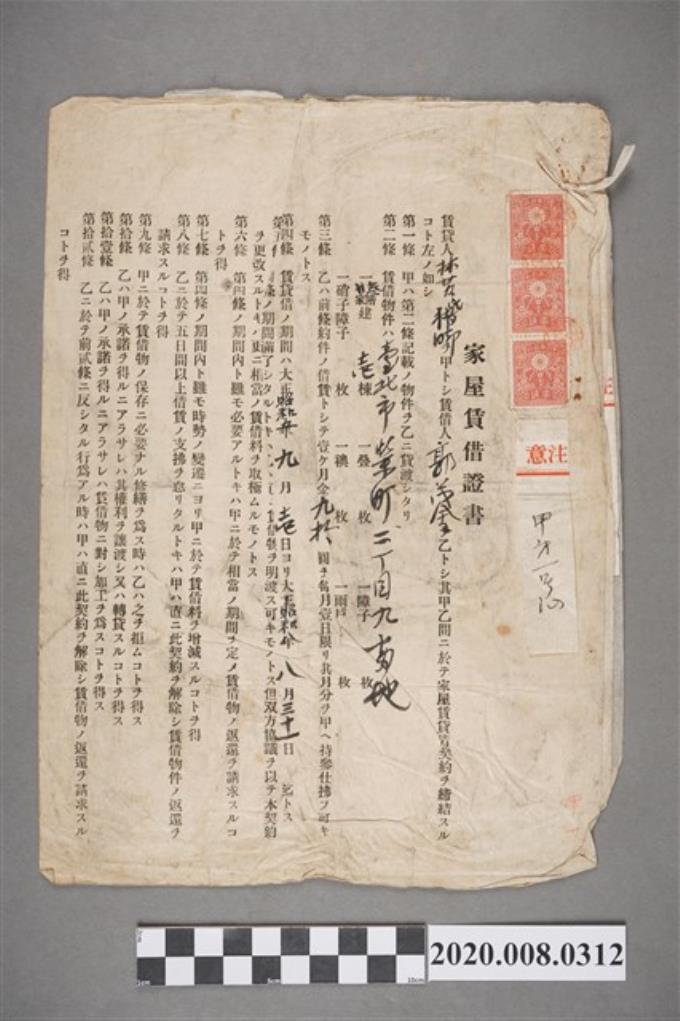 注意
甲第一号證
家屋賃借證書
賃貸人 甲トシ賃借人郭 乙トシ其甲乙間ニ於テ家屋賃貸借契約ヲ締結スル
コト左ノ如シ
第一條 甲ハ第二條記載ノ物件ヲ乙ニ貸渡シタリ
第二條 賃借物件ハ臺北市榮町二丁目九番地
一 建 壱棟 一疊 枚 一障子 枚
一硝子障子 枚 一襖 枚 一雨戸 枚
第三條 乙ハ前條約件ノ借賃トシテ壹ケ月金九拾 圓ヲ毎月壹日限リ其月分ヲ甲ヘ持參仕拂フ可キ
モノトス
第四條 賃貸借ノ期間ハ大正 昭和 年九月壱日ヨリ大正 昭和 年八月三十一日 迄トス
條ノ期間滿了シタルトキハ 賃借物ヲ明渡ス可キモノトス但双方協議ヲ以テ本契約
ヲ更改スルトキハ更ニ相當ノ賃借料ヲ取極ムルモノトス
第六條 第四條ノ期間内ト雖モ必要アルトキハ甲ニ於テ相當ノ期間ヲ定メ賃借物ノ返還ヲ請求スルコ
トヲ得
第七條 第四條ノ期間内ト雖モ時勢ノ變遷ニヨリ甲ニ於テ賃借料ヲ增減スルコトヲ得
第八條 乙ニ於テ五日間以上借賃ノ支拂ヲ怠リタルトキハ甲ハ直ニ此契約ヲ解除シ賃借物件ノ返還ヲ
請求スルコトヲ得
第九條 甲ニ於テ賃借物ノ保存ニ必要ナル修繕ヲ爲ス時ハ乙ハ之ヲ拒ムコトヲ得ス
第拾條 乙ハ甲ノ承諾ヲ得ルニアラサレハ其權利ヲ讓渡シ又ハ轉貸スルコトヲ得ス
第拾壹條 乙ハ甲ノ承諾ヲ得ルニアラサレハ賃借物ニ對シ加工ヲ爲スコトヲ得ス
第拾貳條 乙ニ於テ前貳條ニ反シタル行爲アル時ハ甲ハ直ニ此契約ヲ解除シ賃借物ノ返還ヲ請求スル
コトヲ得
2020.008.0312